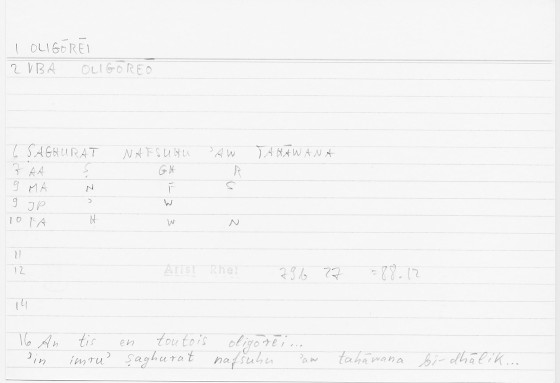 1 OLIGŌRĒI
2 VBA OLIGŌREŌ
6 ṢAGHURAT NAFSUHU ʾAW TAHĀWANA
7 AA Ṣ GH R
8 MA N F S
9 JP ʾ W
10 FA H W N
11
12 Arist Rhet 296 27 =88.12
14
16 An tis en toutois oligōrēi...
ʾin imruʾ ṣaghurat nafsuhu ʾaw tahāwana bi-dhālik...